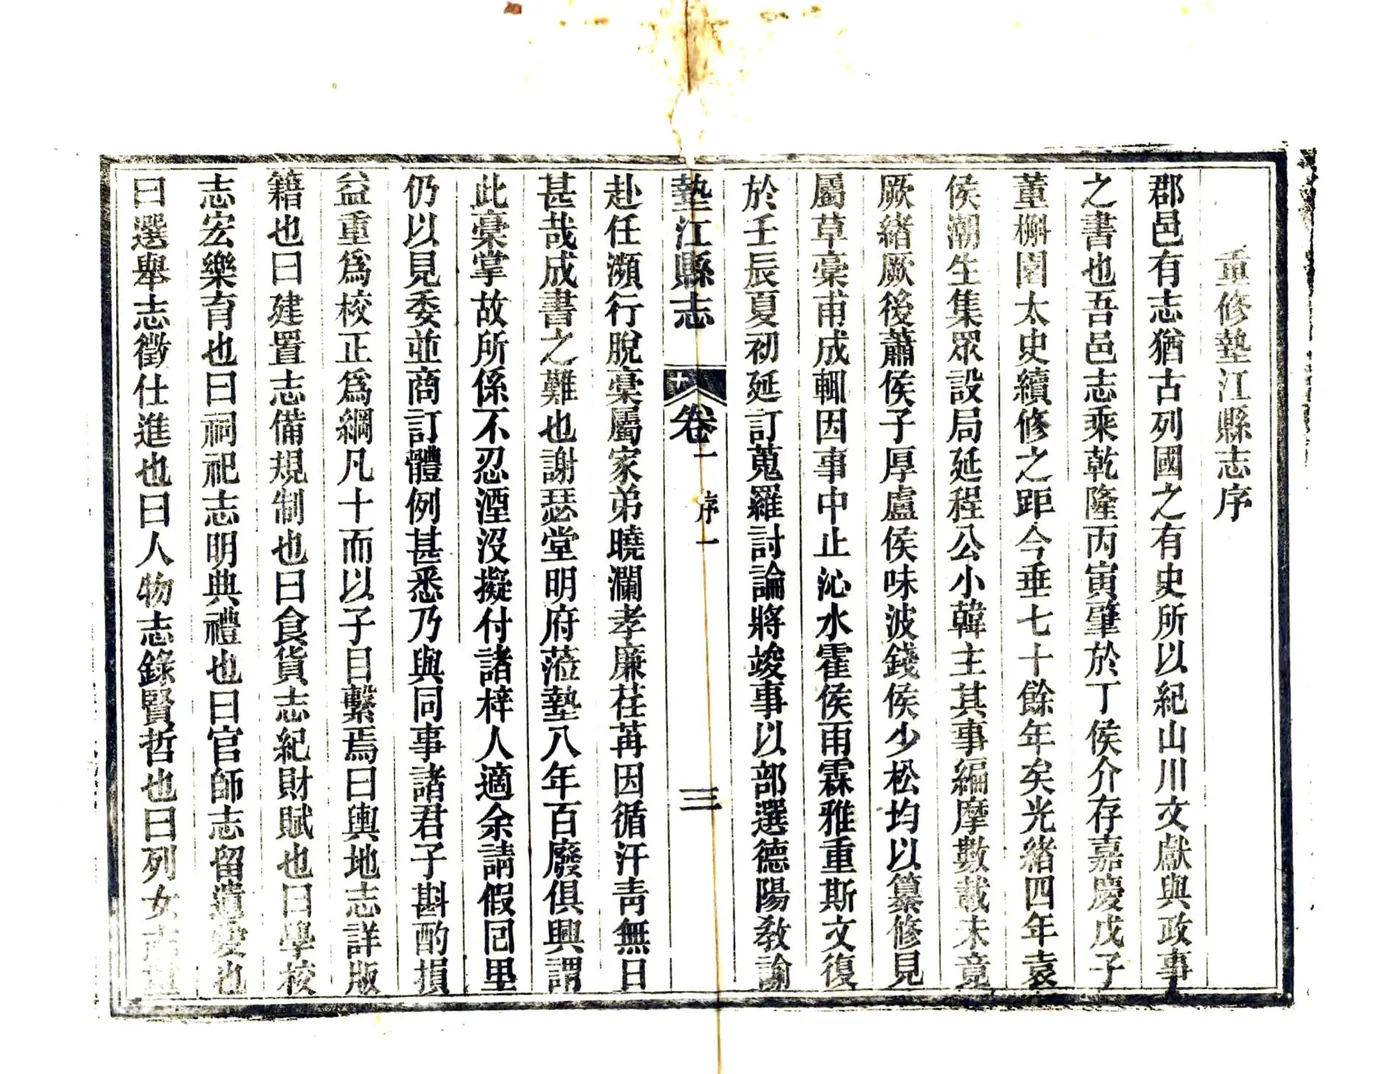 重修墊江縣志序
郡邑有志猶古列國之有史所以紀山川文獻與政事
之書也吾邑志乘乾隆丙寅肇於丁侯介存嘉慶戊子
董榭園太史續修之距今垂七十餘年矣光緒四年袁
侯潮生集眾設局延程公小韓主其事編摩數載未竟
厥緒厥後蕭侯子厚盧侯味波錢侯少松均以纂修見
屬草稾甫成輒因事中止沁水霍侯雨霖雅重斯文復
於壬辰夏初延訂蒐羅討論將竣事以部選德陽教諭
墊江縣志
卷一
序一
三
赴任瀕行脫稾屬家弟曉瀾孝廉荏苒因循汗青無日
甚哉成書之難也謝瑟堂明府蒞墊八年百廢俱興謂
此稾掌故所係不忍湮沒擬付諸梓人適余請假回里
仍以見委並商訂體例甚悉乃與同事諸君子斟酌損
益重為校正為綱凡十而以子目繫焉曰輿地志詳版
籍也曰建置志備規制也曰食貨志紀財賦也曰學校
志宏樂育也曰祠祀志明典禮也曰官師志留遺愛也
曰選舉志徵仕進也曰人物志錄賢哲也曰列女志